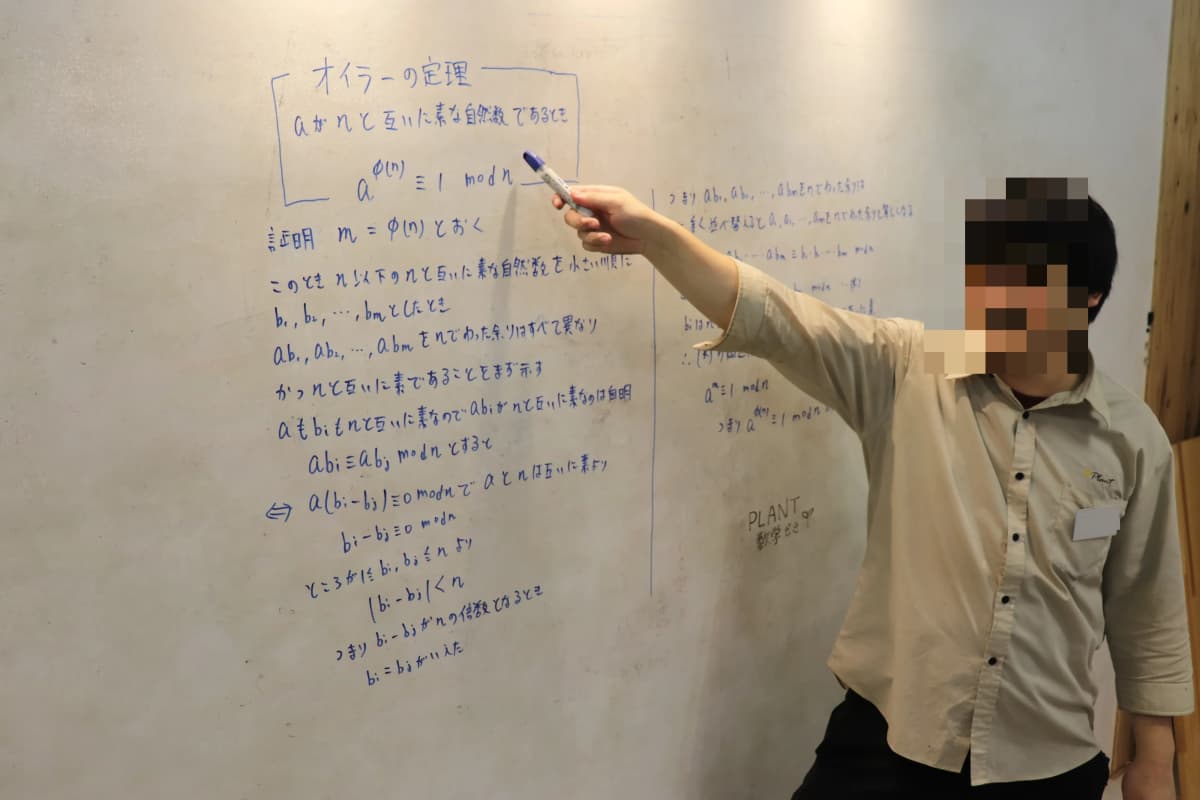 オイラーの定理
aがnと互いに素な自然数であるとき
a^φ(n) ≡ 1 mod n
証明 m = φ(n) とおく
このときn以下のnと互いに素な自然数を小さい順に
b₁, b₂, …, bmとしたとき
ab₁, ab₂, …, abmをnでわった余りはすべて異なり
かつnと互いに素であることをまず示す
aもbiもnと互いに素なのでabiがnと互いに素なのは自明
abi≡abj mod nとすると
⇔ a(bi-bj)≡0 mod nでaとnは互いに素より
bi-bj≡0 mod n
ところが1≦bi, bj≦nより
|bi-bj|<n
つまりbi-bjがnの倍数となるとき
bi=bjがいえた
つまりab₁, ab₂, …, abmをnでわった余りは
abm≡b₁b₂…bm mod n
mod n
biはn
a^m≡1 mod n
つまりa^φ(n)≡1 mod n
PLANT
数学ゼミ
Plant